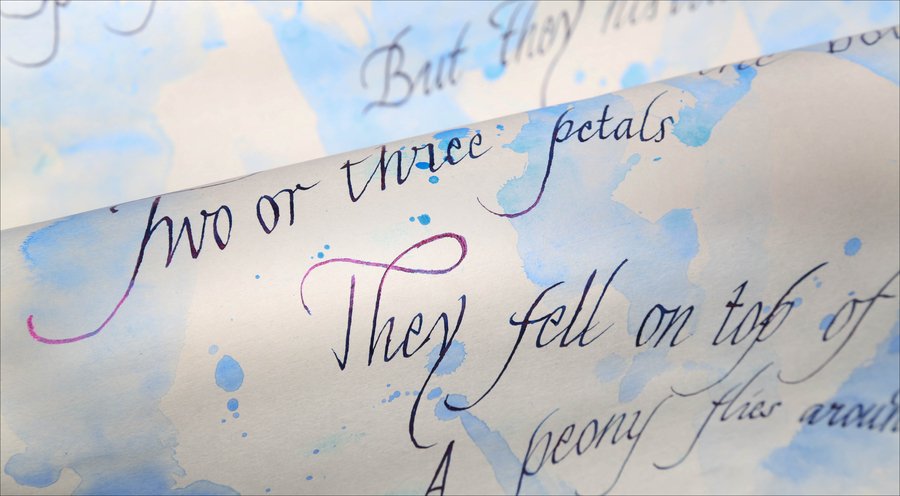 But they
Two or three petals
They fell on top of
A peony flies